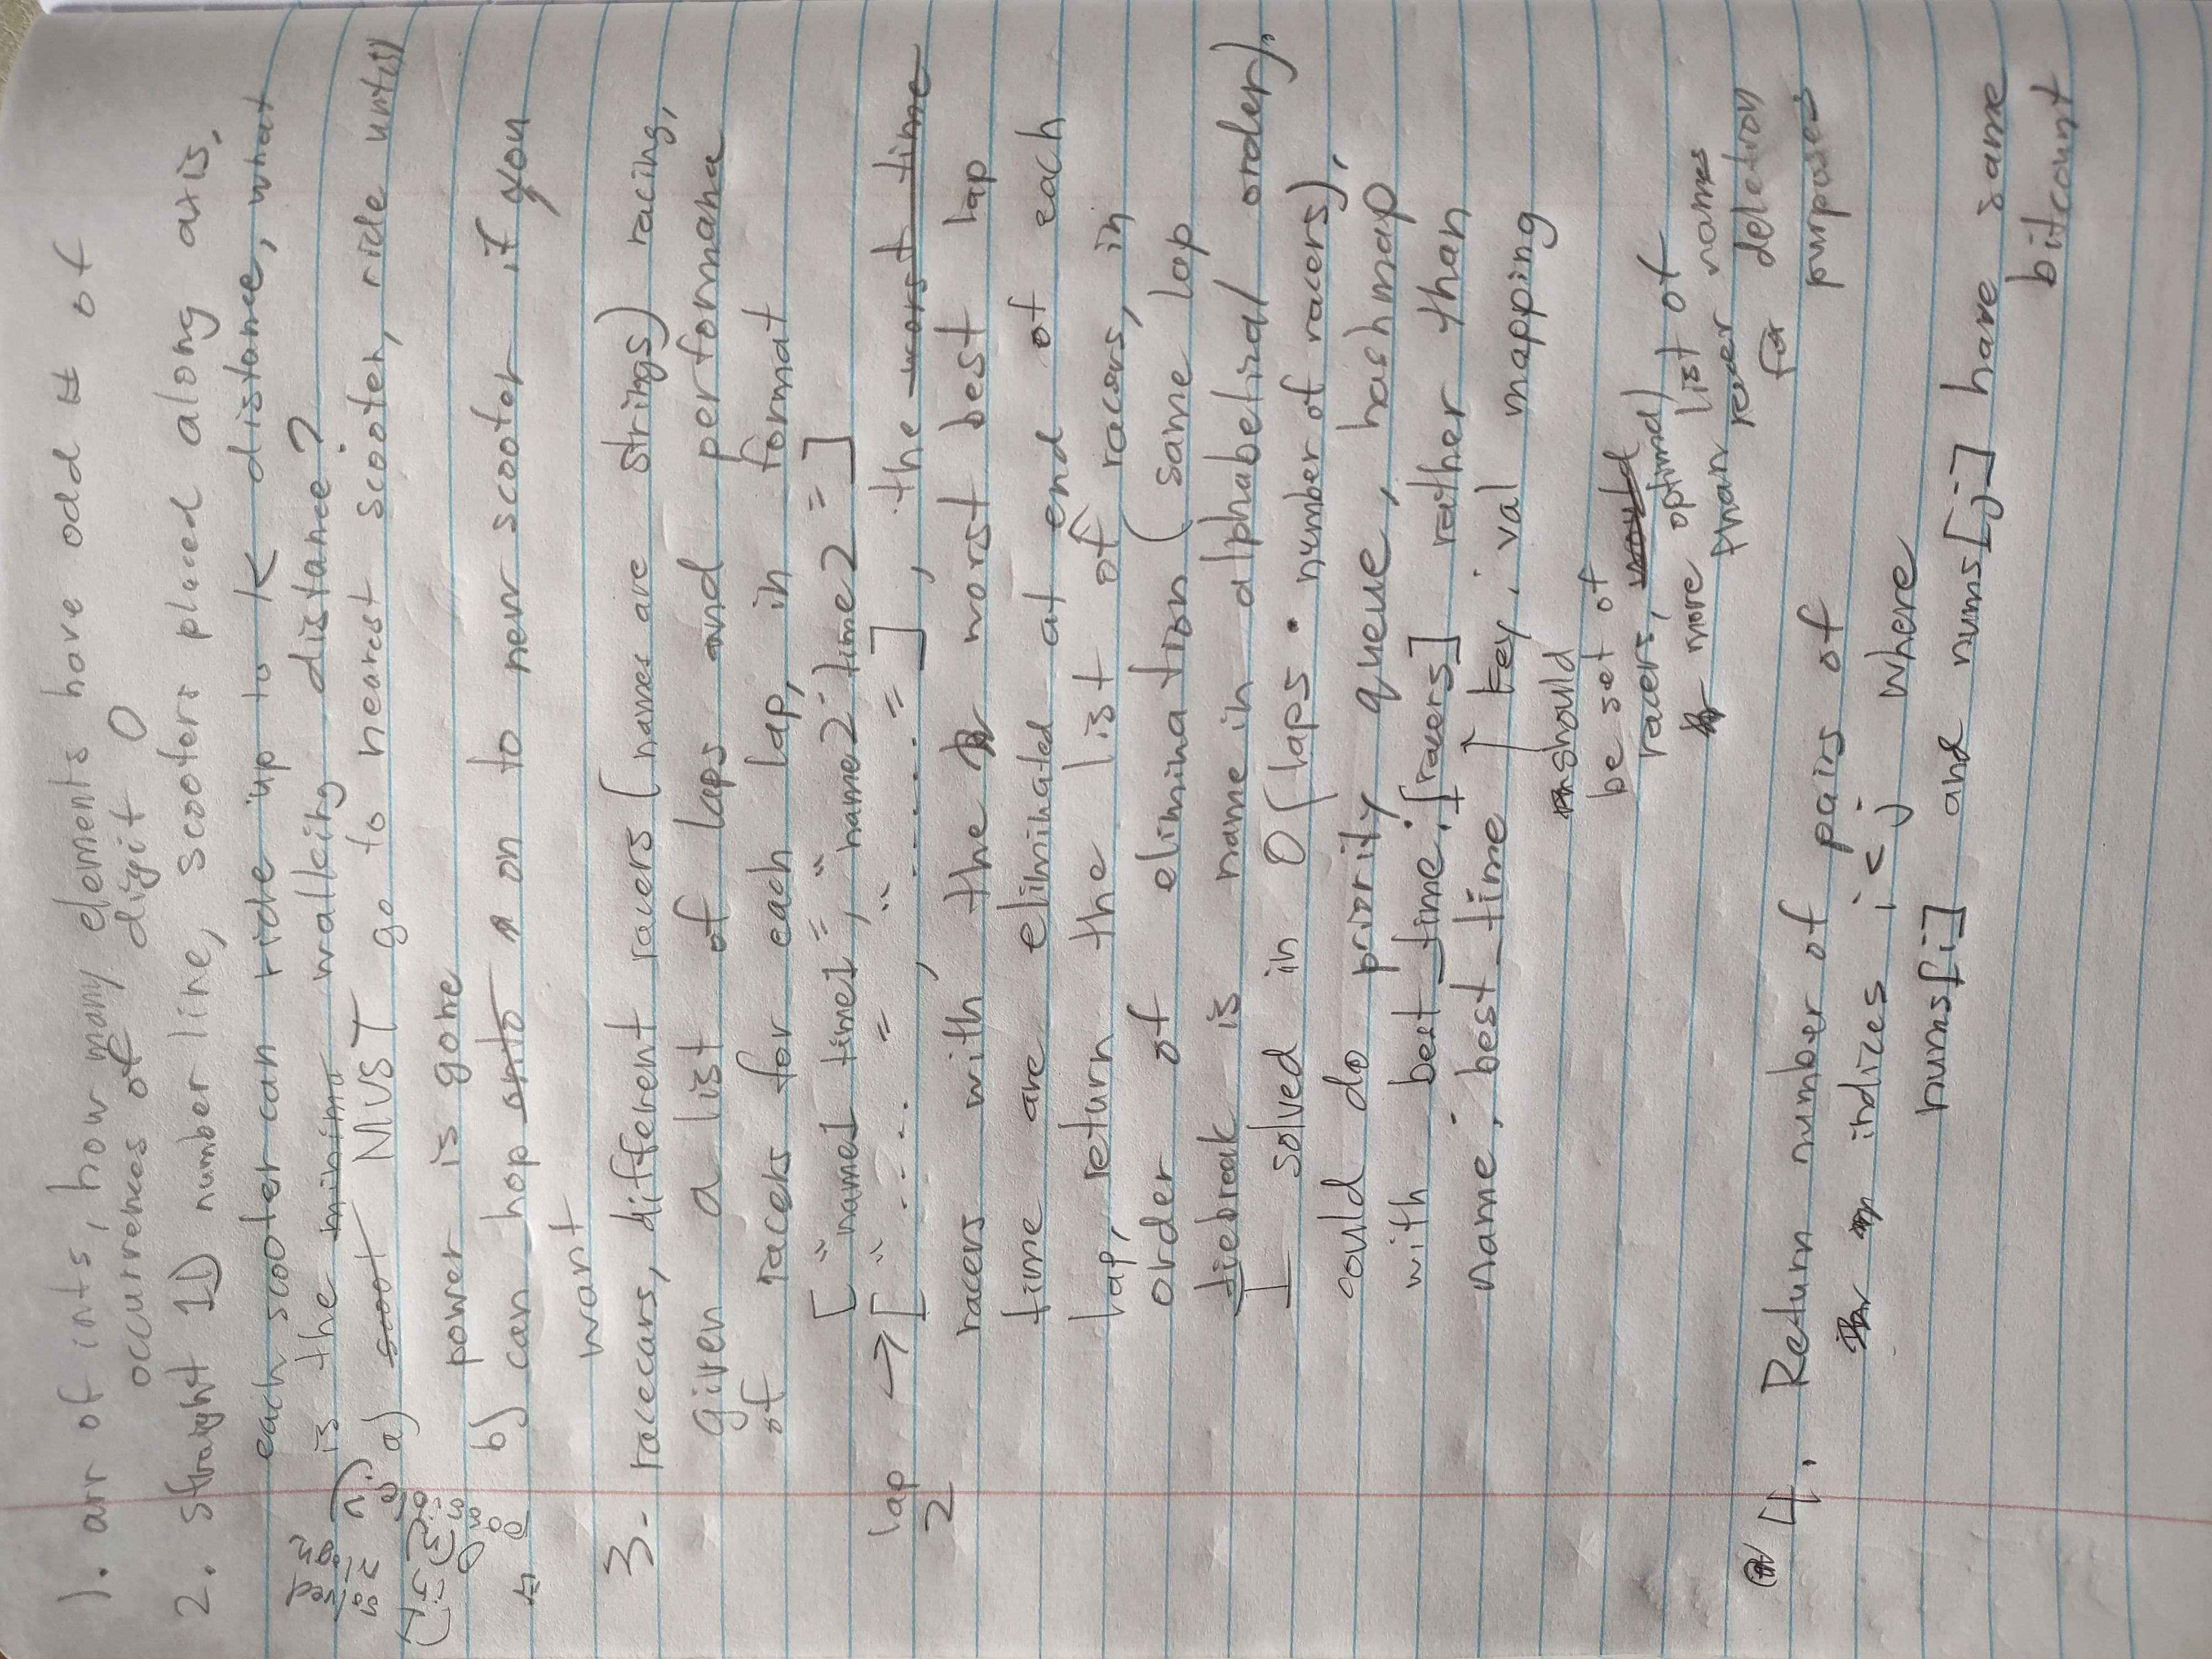 1. arr of ints, how many elements have odd # of
occurrences of digit 0
2. straight 1D number line, scooters placed along axis,
each scooter can ride up to K distance, what
is the minima walking distance?
a) scoot MUST go to nearest scooter, ride until
power is gone
b) can hop onto on to new scooter if you
want
(I solved
in nlogn
is O(n)
possible?)
3. racecars, different racers (names are strings) racing,
given a list of laps and performance
of racers for each lap, in format
["name1 time1", "name2 time2"]
lap 2 → [".....", "....."], the worst time
racers with the worst best lap
time are eliminated at end of each
lap, return the list of racers, in
order of elimination (same lap
tiebreak is name in alphabetical order).
I solved in O(laps · number of racers),
could do priority queue, hashmap
with best_time: [racers] rather than
name: best_time ↑ key: val mapping
should
be set of
racers, would
more optimal
than list of
racer names
for deletion
purposes
4. Return number of pairs of
indices i < j where
nums[i] and nums[j] have same
bitcount